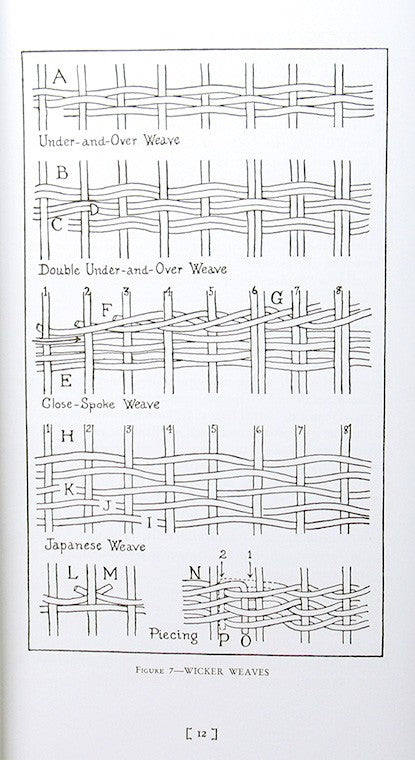 A
Under-and-Over Weave
B
D
C
Double Under-and-Over Weave
1 2 3 4 5 6 7 8
F G
E
Close-Spoke Weave
1 2 3 4 5 6 7 8
H
K
J
I
Japanese Weave
2 1
L M N
Piecing P O
Figure 7—WICKER WEAVES
[ 12 ]